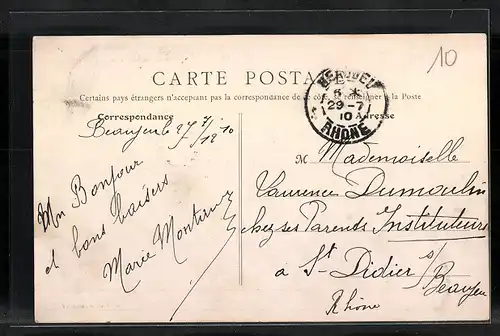 10
CARTE POSTALE
Certains pays étrangers n'acceptent pas la correspondance de ce côté. Se renseigner à la Poste
BEAUJEU
29-7
10
RHÔNE
Correspondance
Adresse
Beaujeu le 27/7/1910
Un Bonjour
et bons baisers
Marie
M Mademoiselle
Laurence Dumoulin
chez ses Parents Instituteurs
à St Didier s/
Beaujeu
Rhône